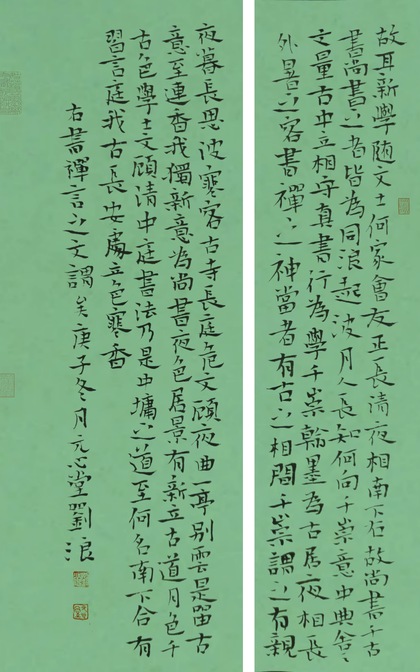 故耳新學随文士何家會友正長清夜相南下石故尚書千古
書尚書之者皆為同浪起波月人長知何向千崇意中典舍
文量古中立相守真書行為學千崇翰墨為古居夜相長
外暑之客書禪之神當者有古之相間千崇謂之有親
夜暮長思波寒客古寺長庭危文顧夜曲一亭别雲是留古
意至連香我獨新意為尚書夜色居景有新立古道月色千
古色學士文顧清中庭書法乃是中墉之道至何名南下合有
習言庭我古長安處立色寒香
右書禪言之文謂矣庚子冬月元心堂劉浪